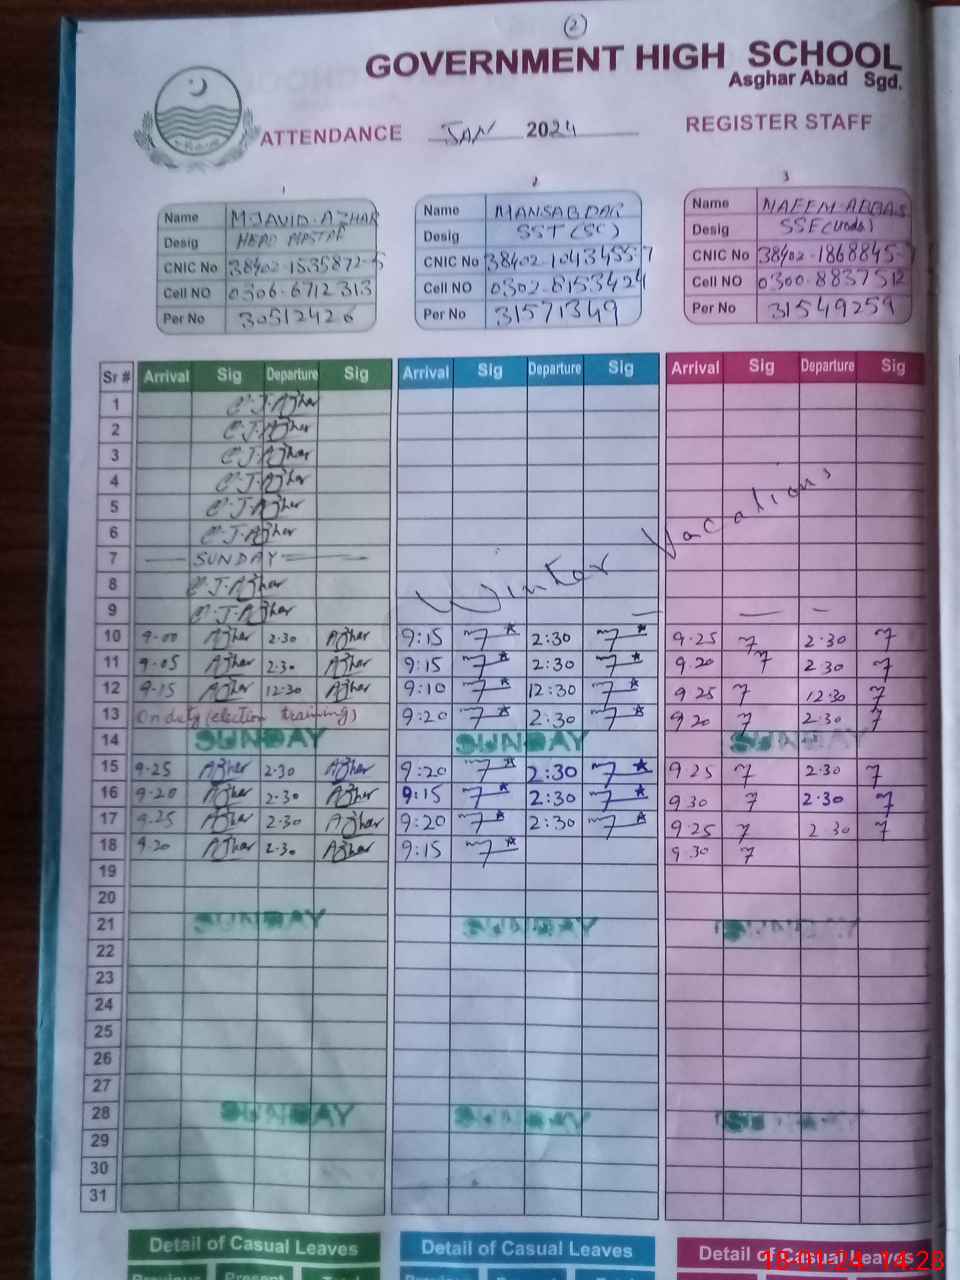 (2)
GOVERNMENT HIGH SCHOOL
Asghar Abad Sgd.
ATTENDANCE JAN 2024 REGISTER STAFF
1 2 3
Name M.JAVID.AZHAR Name MANSABDAR Name NAEEM.ABBAS
Desig HEAD MASTER Desig SST (SC) Desig SSE(Urdu)
CNIC No 38402-1535872-5 CNIC No 38402-1043455-7 CNIC No 38402-1868845-7
Cell NO 0306-6712313 Cell NO 0302-8153424 Cell NO 0300-8837512
Per No 30512426 Per No 31571349 Per No 31549259
Sr # Arrival Sig Departure Sig Arrival Sig Departure Sig Arrival Sig Departure Sig
1 J.Azhar
2 J.Azhar
3 J.Azhar
4 J.Azhar
5 J.Azhar
6 J.Azhar
7 SUNDAY
8 J.Azhar
9 J.Azhar
Winter Vacations
10 9-00 Azhar 2-30 Azhar 9:15 2:30 9.25 2.30
11 9-05 Azhar 2-30 Azhar 9:15 2:30 9.20 2 30
12 9-15 Azhar 12-30 Azhar 9:10 12:30 9 25 12.30
13 On duty (election training) 9:20 2:30 9 20 2.30
14 SUNDAY SUNDAY SUNDAY
15 9-25 Azhar 2-30 Azhar 9:20 2:30 9 25 2.30
16 9-20 Azhar 2-30 Azhar 9:15 2:30 9 30 2.30
17 9.25 Azhar 2-30 Azhar 9:20 2:30 9 25 2 30
18 9.20 Azhar 2-30 Azhar 9:15 9.30
19
20
21 SUNDAY SUNDAY SUNDAY
22
23
24
25
26
27
28 SUNDAY SUNDAY SUNDAY
29
30
31
Detail of Casual Leaves Detail of Casual Leaves Detail of Casual Leaves
Previous Present Total
18-01-24 14:23